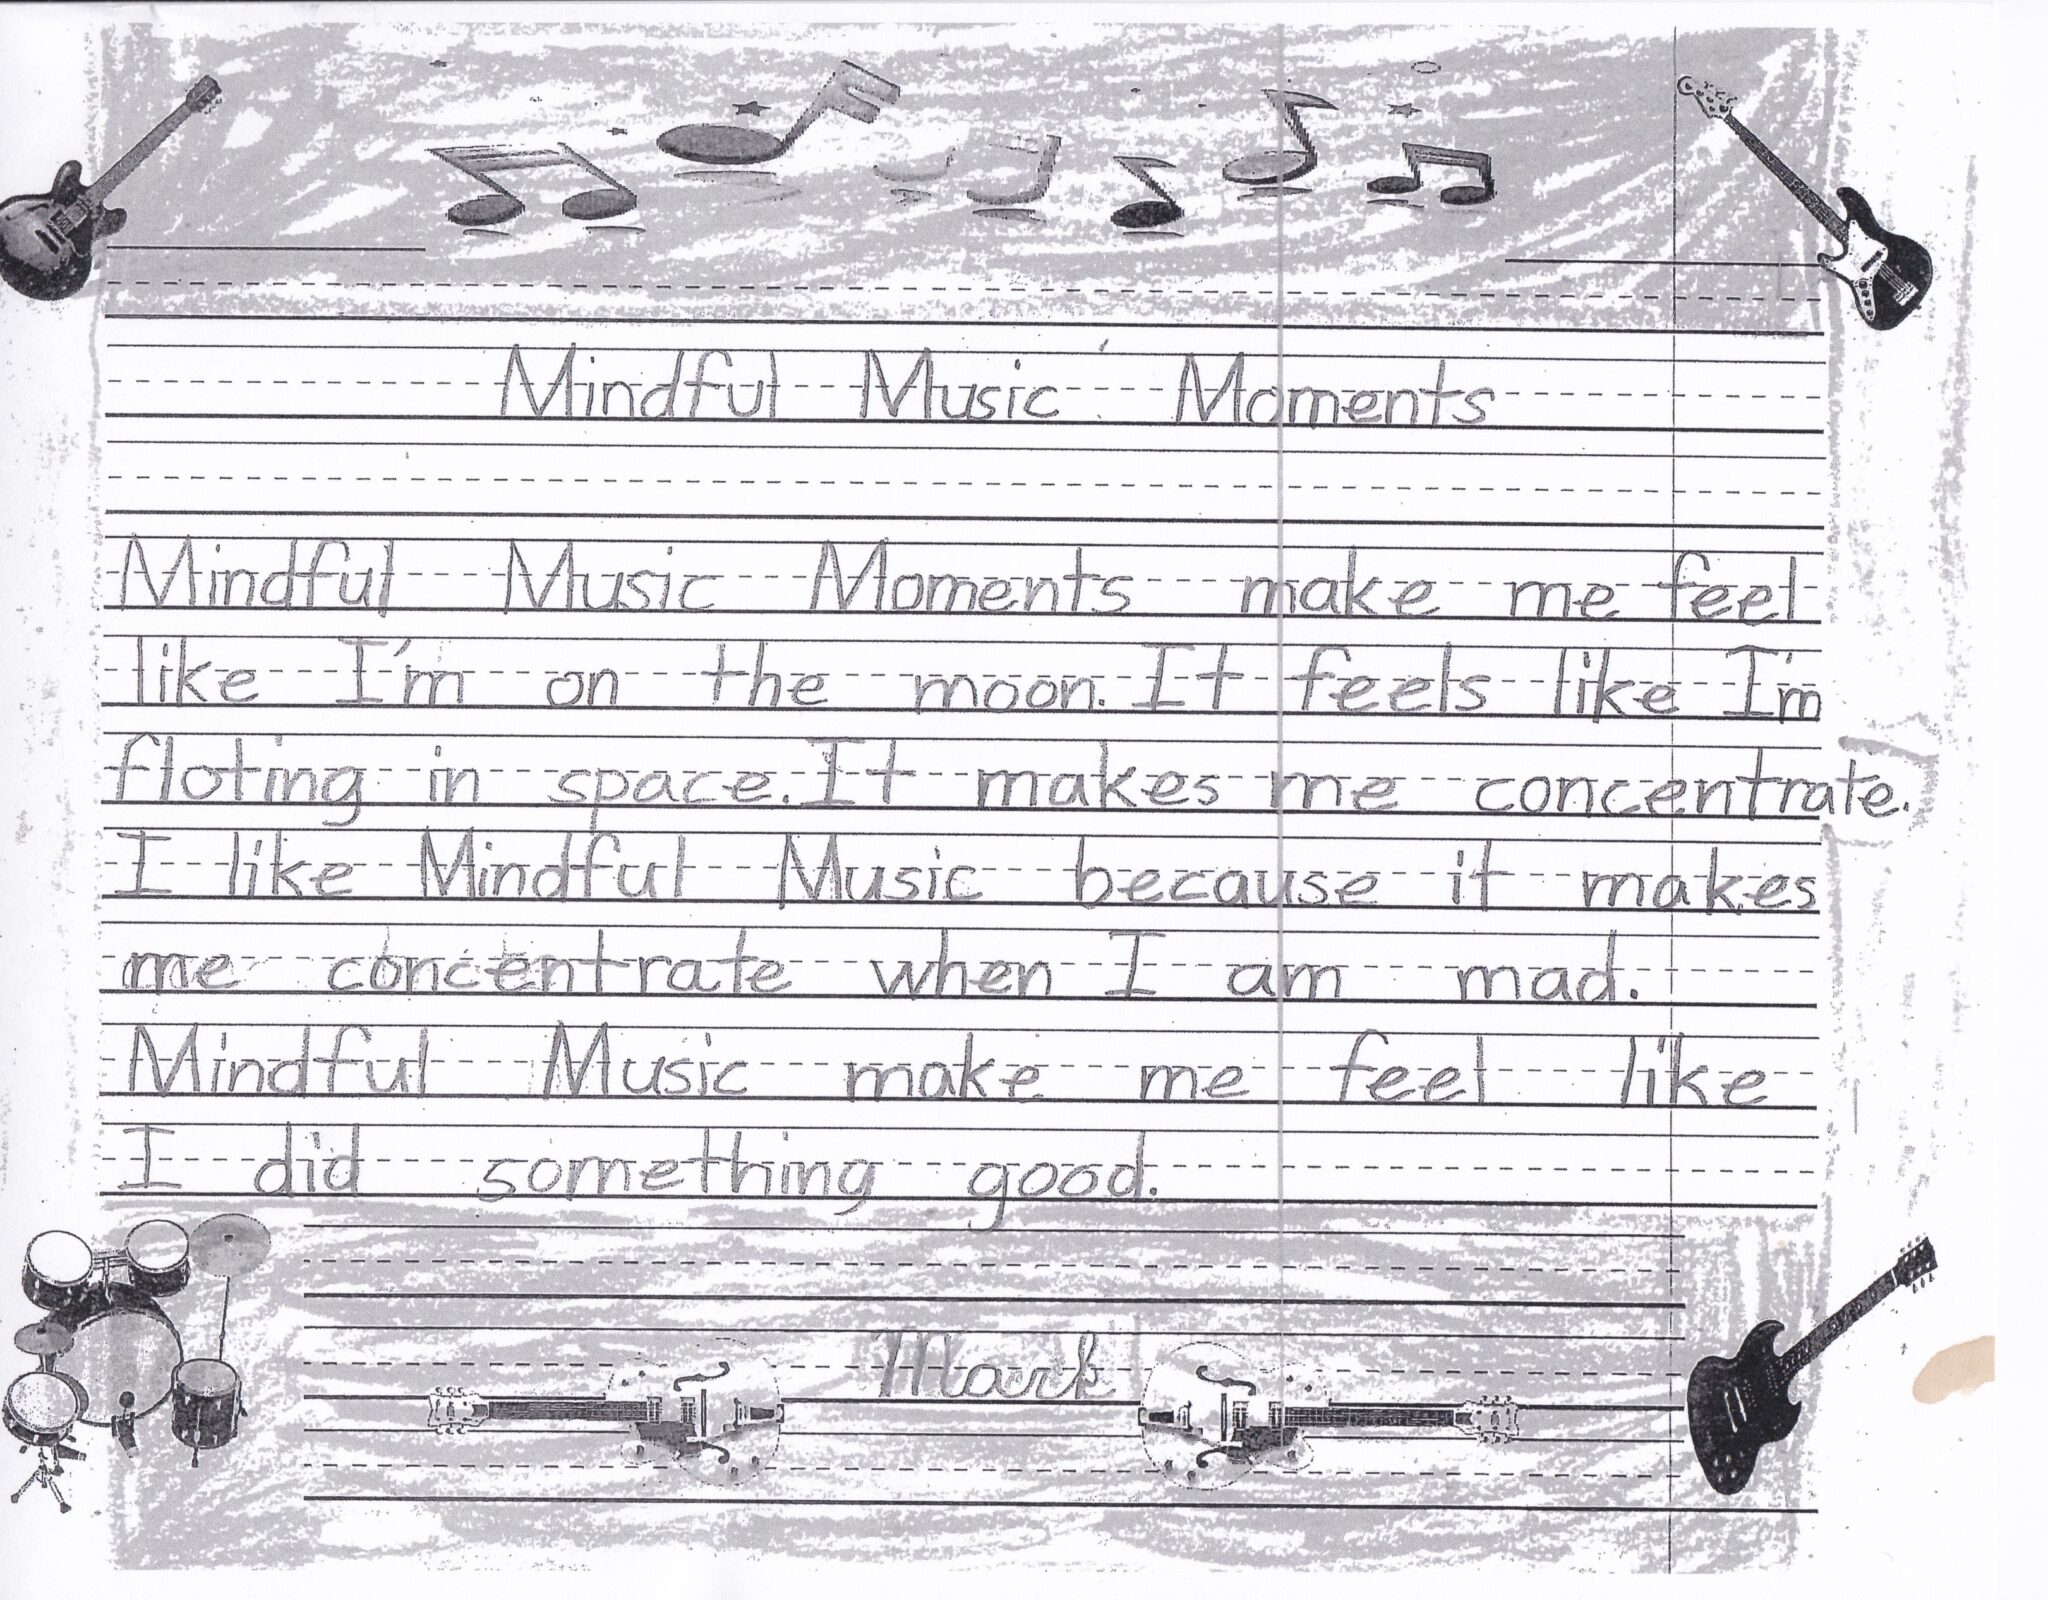 Mindful Music Moments
Mindful Music Moments make me feel
like I'm on the moon. It feels like I'm
floting in space. It makes me concentrate.
I like Mindful Music because it makes
me concentrate when I am mad.
Mindful Music make me feel like
I did something good.
Mark